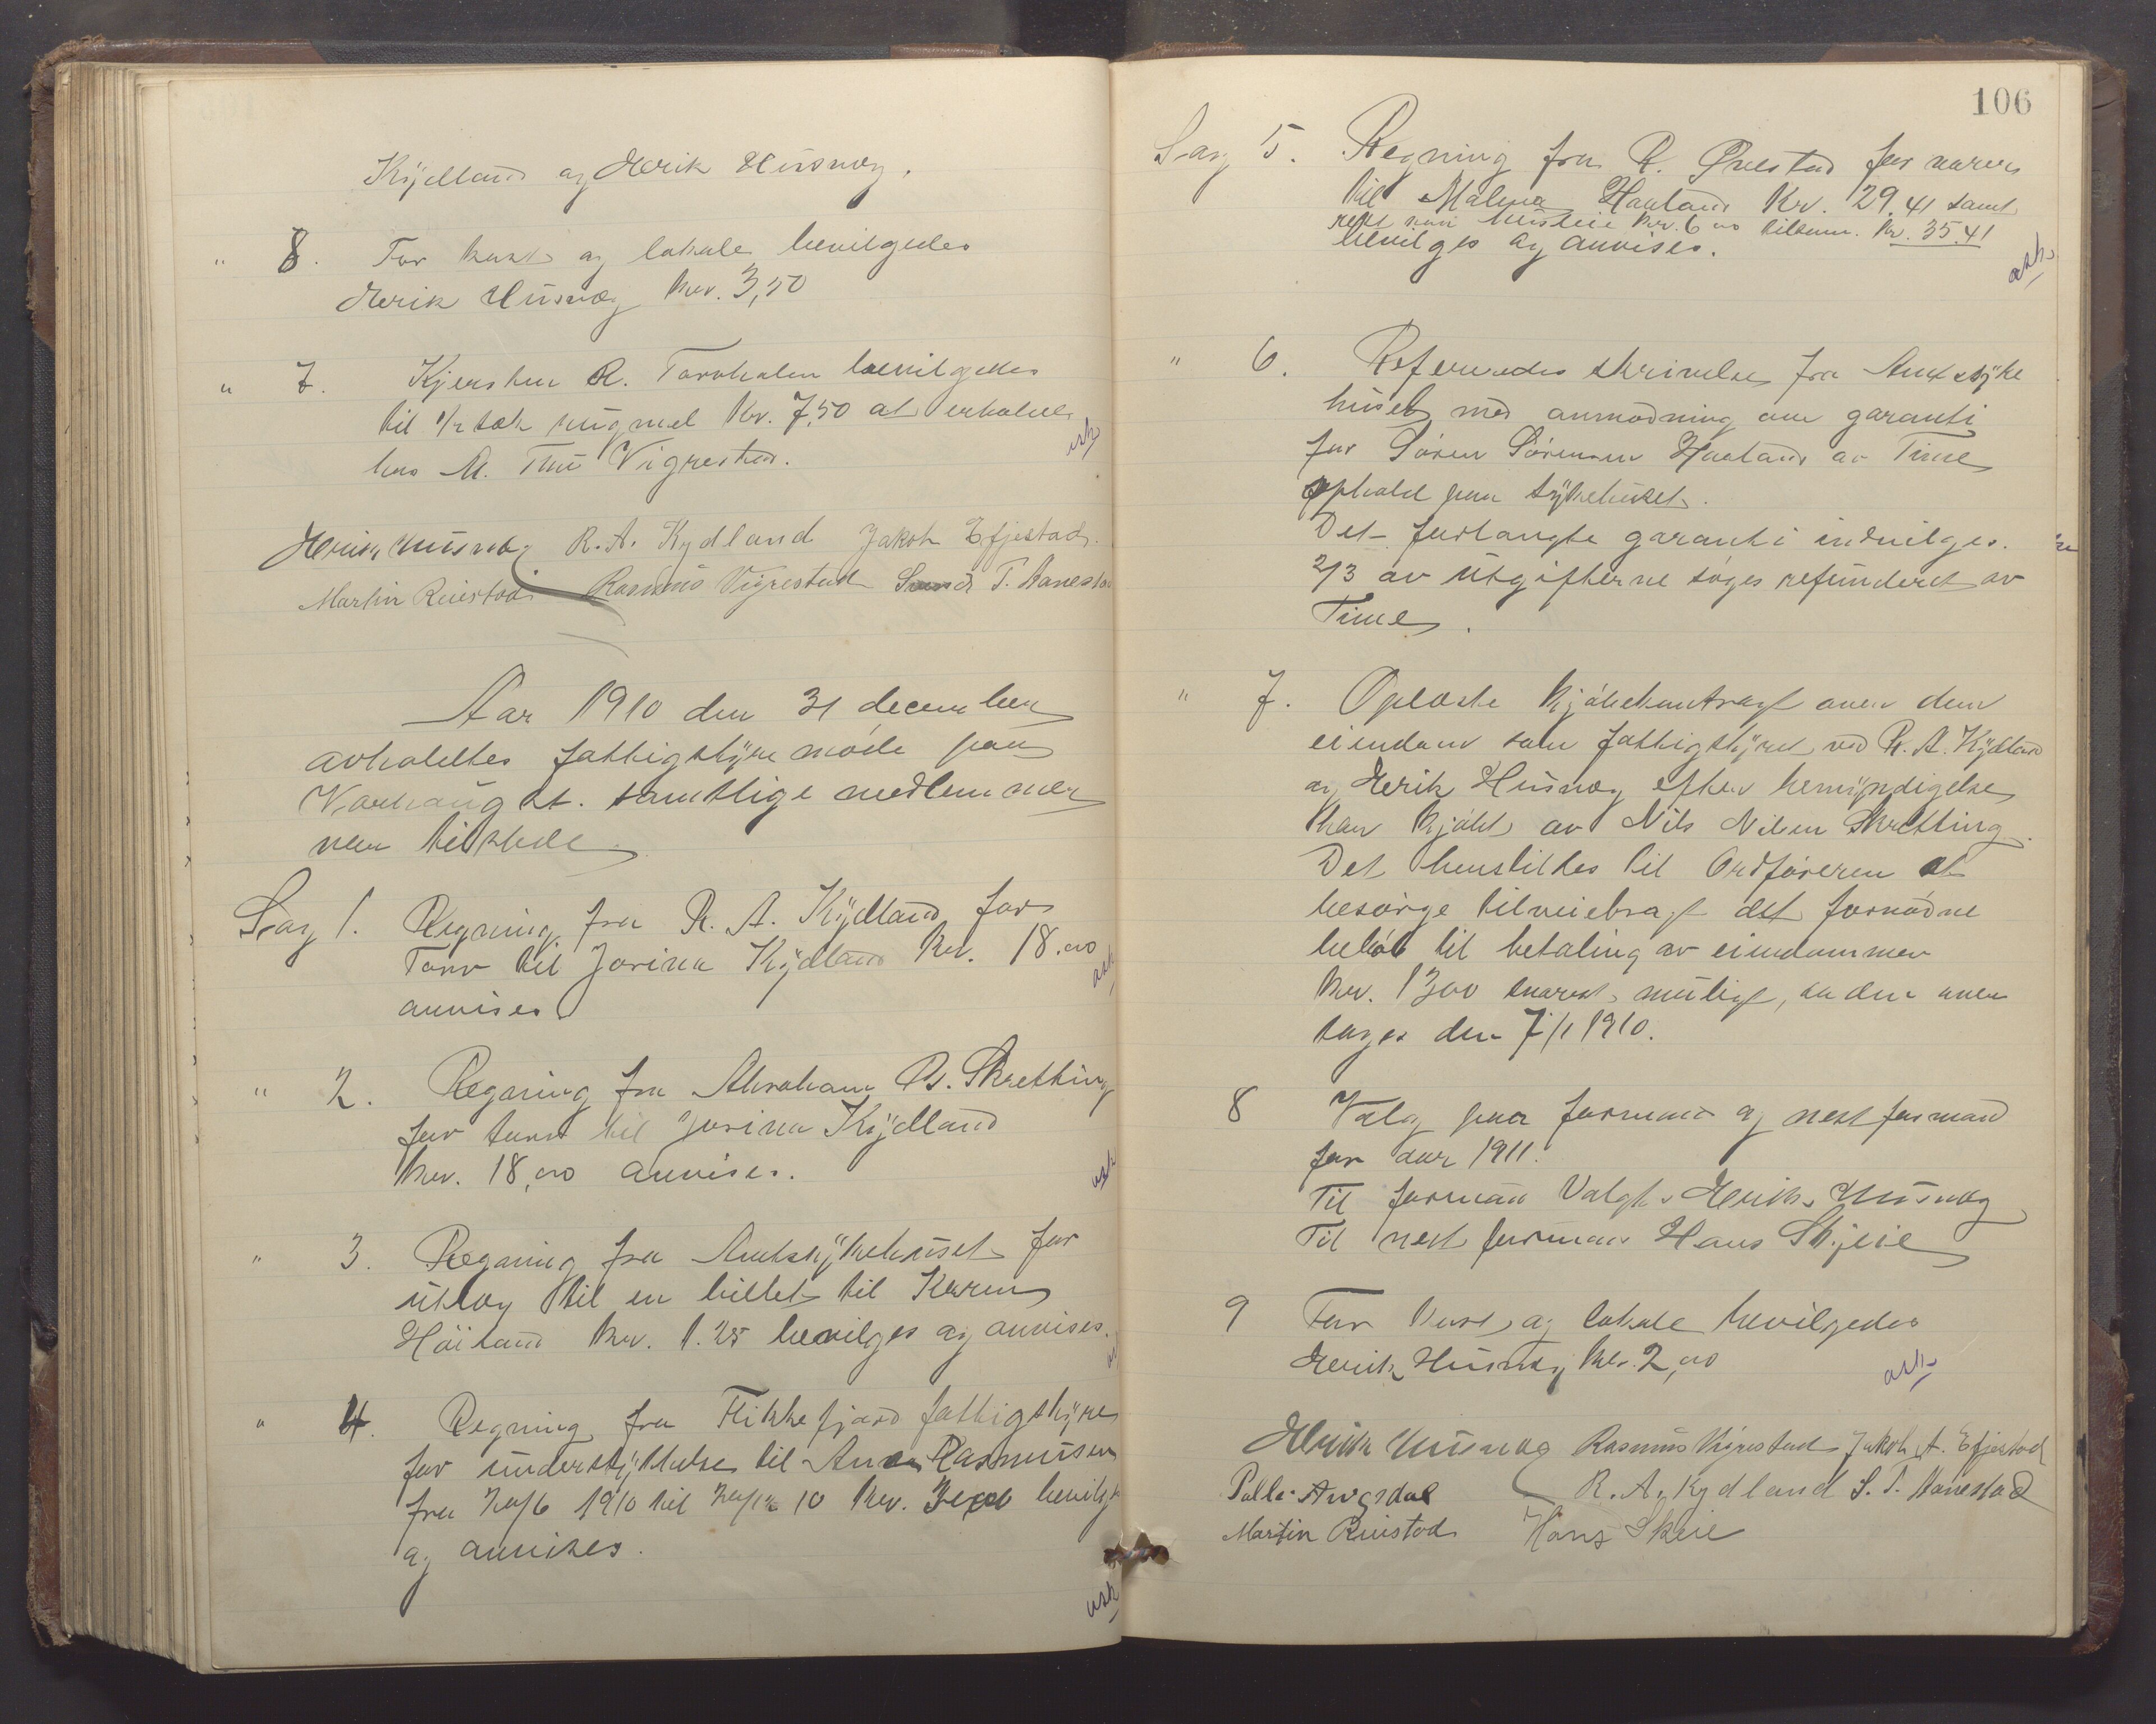 Kydland og Herik Husvæg.
" 8. For kost og lokale bevilgedes
Herik Husvæg kr. 3,50
" 7. Kjersten R. Tarvhalen bevilgedes
til 1/2 sæk rugmel Kr. 7,50 at erholde
hos M. Thu Vigrestad.
usk
Herik Husvæg R. A. Kydland Jakob Efjestad.
Martin Ruestad Rasmus Vigrestad T. Aanestad
Aar 1910 den 31 december
avholdtes fattigstyremöde paa
Varhaug st. samtlige medlemmer
var tilstede.
Sag 1. Regning fra R. A. Kydland for
Torv til Jorina Kydland kr. 18.00
anvises
ask
" 2. Regning fra Abraham B. Skretting
for torv til Jorina Kydland
kr. 18,00 anvises.
ask
" 3. Regning fra Amtssykehuset for
utlæg til en billet til Karen
Höiland kr. 1.25 bevilges og anvises.
" 4. Regning fra Flikkefjord fattigstyre
for understyttelse til Rasmusen
fra 20/6 1910 til 20/12 10 kr. bevilges
og anvises.
ask
106
Sag 5. Regning fra R. Ørrestad for varer
til Malena Haaland Kr. 29.41 samt
husleie kr. 6 00 tilsam. kr. 35.41
bevilges og anvises.
ask
" 6. Refereredes skrivelse fra Amtssyke
huset med anmodning om garanti
for Sören Sörensen Haaland av Time
ophold paa sykehuset.
Det forlangte garanti indvilges.
2/3 av utgifterne söges refunderet av
Time.
" 7. Oplæste kjöbekontragt over den
eiendom som fattigstyret ved R. A. Kydland
og Herik Husvæg efter bemyndigelse
har kjöbt av Nils Nilsen Skretting.
Det henstilles til Ordföreren at
besörge tilveiebragt det fornödne
belöb til betaling av eiendommen
kr. 1300 snarest mulig, da den over
tages den 7/1 1910.
8 Valg paa formand og nestformand
for aar 1911.
Til formand Valgt Herik Husvæg
Til nestformand Hans Skjeie
9 For kost og lokale bevilgedes
Herik Husvæg kr. 2,00
ask
Herik Husvæg Rasmus Vigrestad Jakob A. Efjestad
Palle Avgsdal R. A. Kydland S. T. Aanestad
Martin Ruistad Hans Skeie